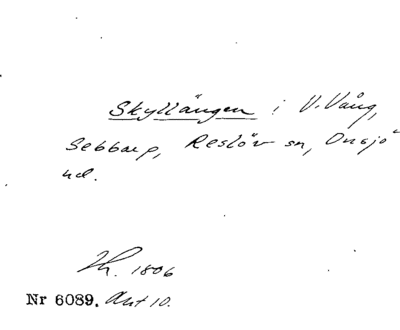 Skyllängen i V. Vång,
Sebbarp, Reslöv sn, Onsjö
hd.
Th. 1806
Nr 6089. Akt 10.